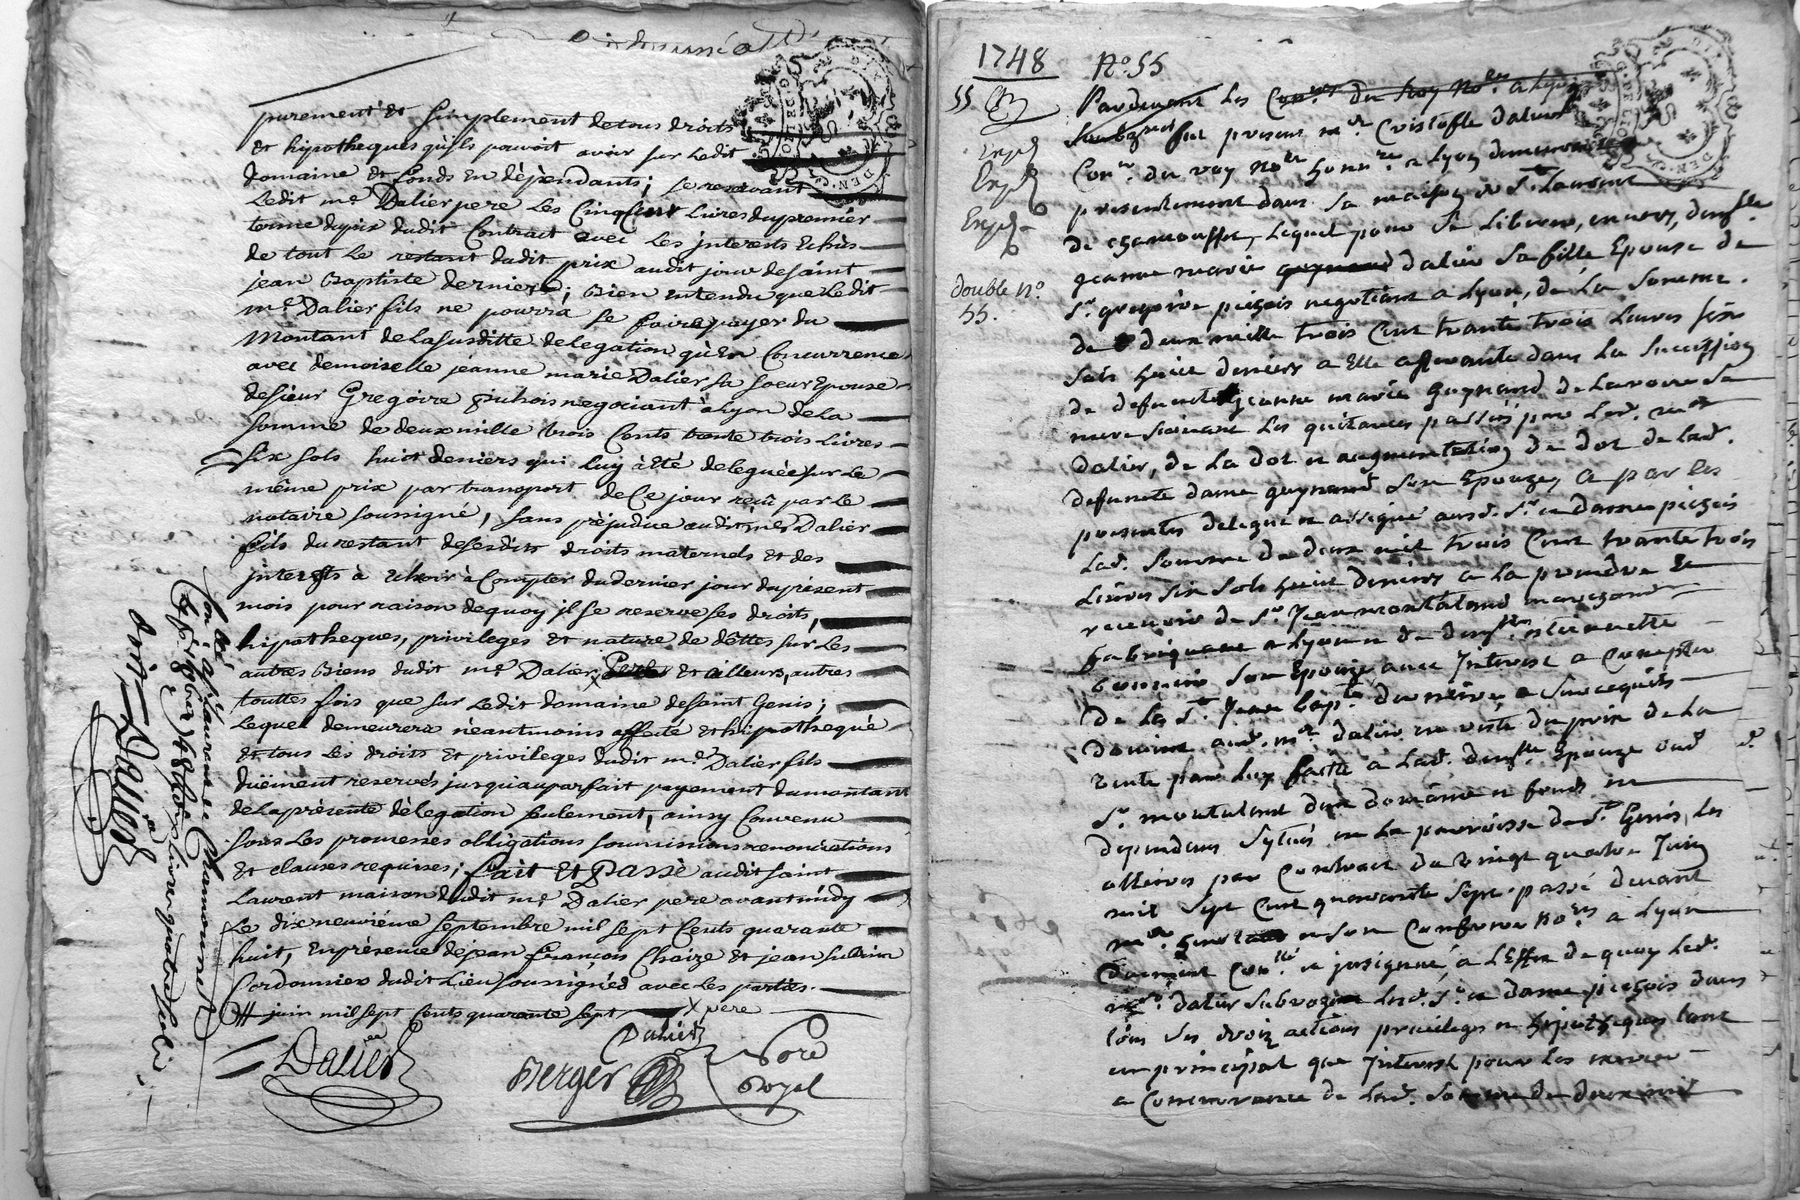 purement et simplement de tous droits
et hipotheques qu'ils pouvoit avoir sur ledit
domaine et fonds en dépendants; se reservant
Ledit me Dalier pere Les Cinq Cent livres du premier
terme du prix dudit Contrat avec Les jnterests Echûs
de tout Le restant dudit prix audit jour de saint
jean Baptiste dernier; Bien entendu que Ledit
me Dalier fils ne pourra se faire payer du
Montant de La susditte delegation qu'en Concurrence
avec demoiselle jeanne marie Dalier sa soeur Epouse
de sieur Gregoire puhois negociant à Lyon de La
somme de deux mille trois Cents trente trois Livres
six sols huit deniers qui luy à été deleguée sur Le
même prix par transport de Ce jour reçu par Le
notaire soussigné, sans préjudice audit me Dalier
fils du restant de ses dits droits maternels et des
jnterests à Echoir à Compter du dernier jour du présent
mois pour raison de quoy jl se reserve ses droits,
hipotheques, privileges et nature de dettes sur Les
autres Biens dudit me Dalier et ailleurs, autres
touttes fois que sur Ledit domaine de saint Genis;
Lequel demeurera néantmoins affecté et hipothequé
et tous Les droits et privileges dudit me Dalier fils
duëment reservés jusqu'au parfait payement du montant
de La présente délegation seulement, ainsy Convenu
sous Les promesses obligations soumissions renonciations
et clauses requises; fait et Passé audit saint
Laurent maison dudit me Dalier pere avant midy
Le dix neuviéme septembre mil sept Cents quarante
huit, en présence de jean françois Chaize et jean
Cordonnier dudit Lieu soussignés avec Les parties.
juin mil sept Cents quarante sept x pere
Dalier
Dalier
Berger
Controllé a St Laurent de Chamousset
1748
Dalier
1748 No. 55
55
Expé
Expé
Expé
double No.
55.
Pardevant Les Coners du Roy Nores a Lyon
soubznés fut present me Cristofle dalier
Coner. du roy Nore honre a Lyon demeurant
presentement dans sa maison de St. Laurent
de chamousset, Lequel pour se liberer, envers, demlle
jeanne marie dalier sa fille Epouse de
Sr. gregoire puzois negotiant a Lyon, de La somme
de deux mille trois Cent trante trois Livres six
sols huit deniers a Elle afferante dans La succession
de defuncte jeanne marie Guynand de Lavoire sa
mere suivant Les quitances passés par Led. me
dalier, de La dot et augmentation de dot de lad.
defuncte dame guynand son Epouze, a par les
presentes delegué et assigné ausd. Sr. et dame puzois
Lad. somme de deux mil trois Cent trante trois
Livres six sols huit deniers a La prendre et
recevoir de Sr. Jean montaland marchand
fabriquant a Lyon et de demlle
son Epouze avec Interest a Compter
de La St. Jean bapte. derniere
deüe aud. me. dalier du prix de La
vente par Luy faitte a Lad. demlle Epouze dud.
Sr. montaland d'un domaine et fonds en
dependans sytués en La parroisse de St. Genis, Les
ollieres par Contract du vingt quatre Juin
mil sept Cent quarante sept passé devant
me et son Confrere Nores a Lyon
a L'Effet de quoy Led.
me. dalier subroge Lesd. Sr. et dame puzois dans
tous ses droiz actions privileges et hipoteques tant
en principal que Interest pour les
a Concurrance de Lad. somme de deux mil